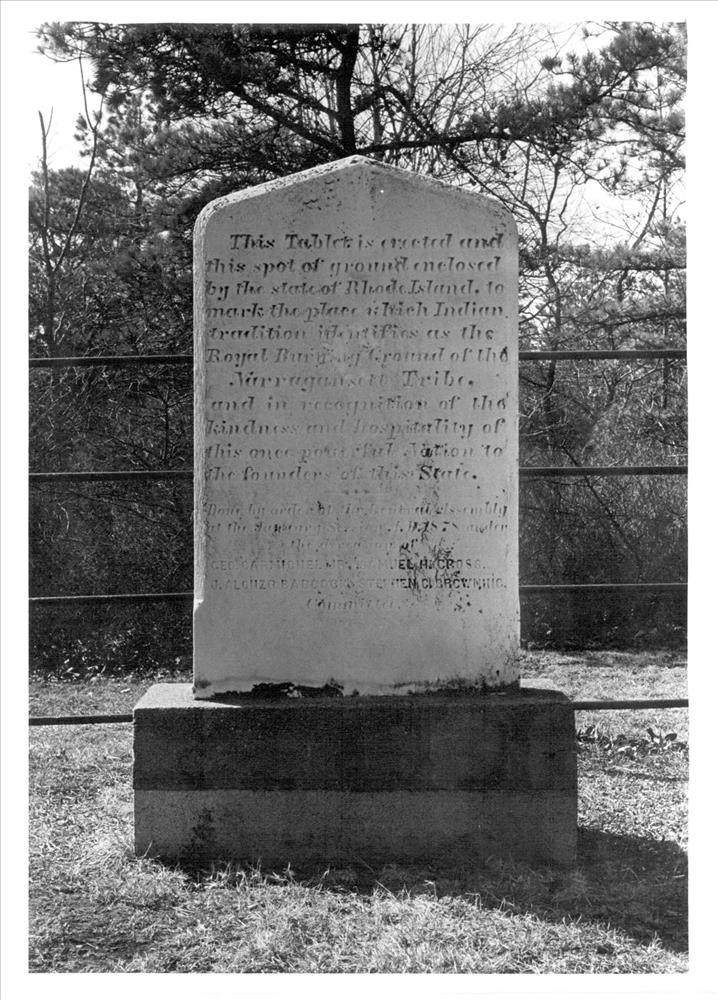 This Tablet is erected and
this spot of ground enclosed
by the state of Rhode Island, to
mark the place which Indian
tradition identifies as the
Royal Burying Ground of the
Narragansett Tribe.
and in recognition of the
kindness and hospitality of
this once powerful Nation to
the founders of this State.
Done by order of the General Assembly
at the January session, A.D. 1878 under
the direction of
GEO. CARMICHEL JR. SAMUEL H. CROSS.
J. ALONZO BABCOCK STEPHEN C. BROWNING.
Committee.